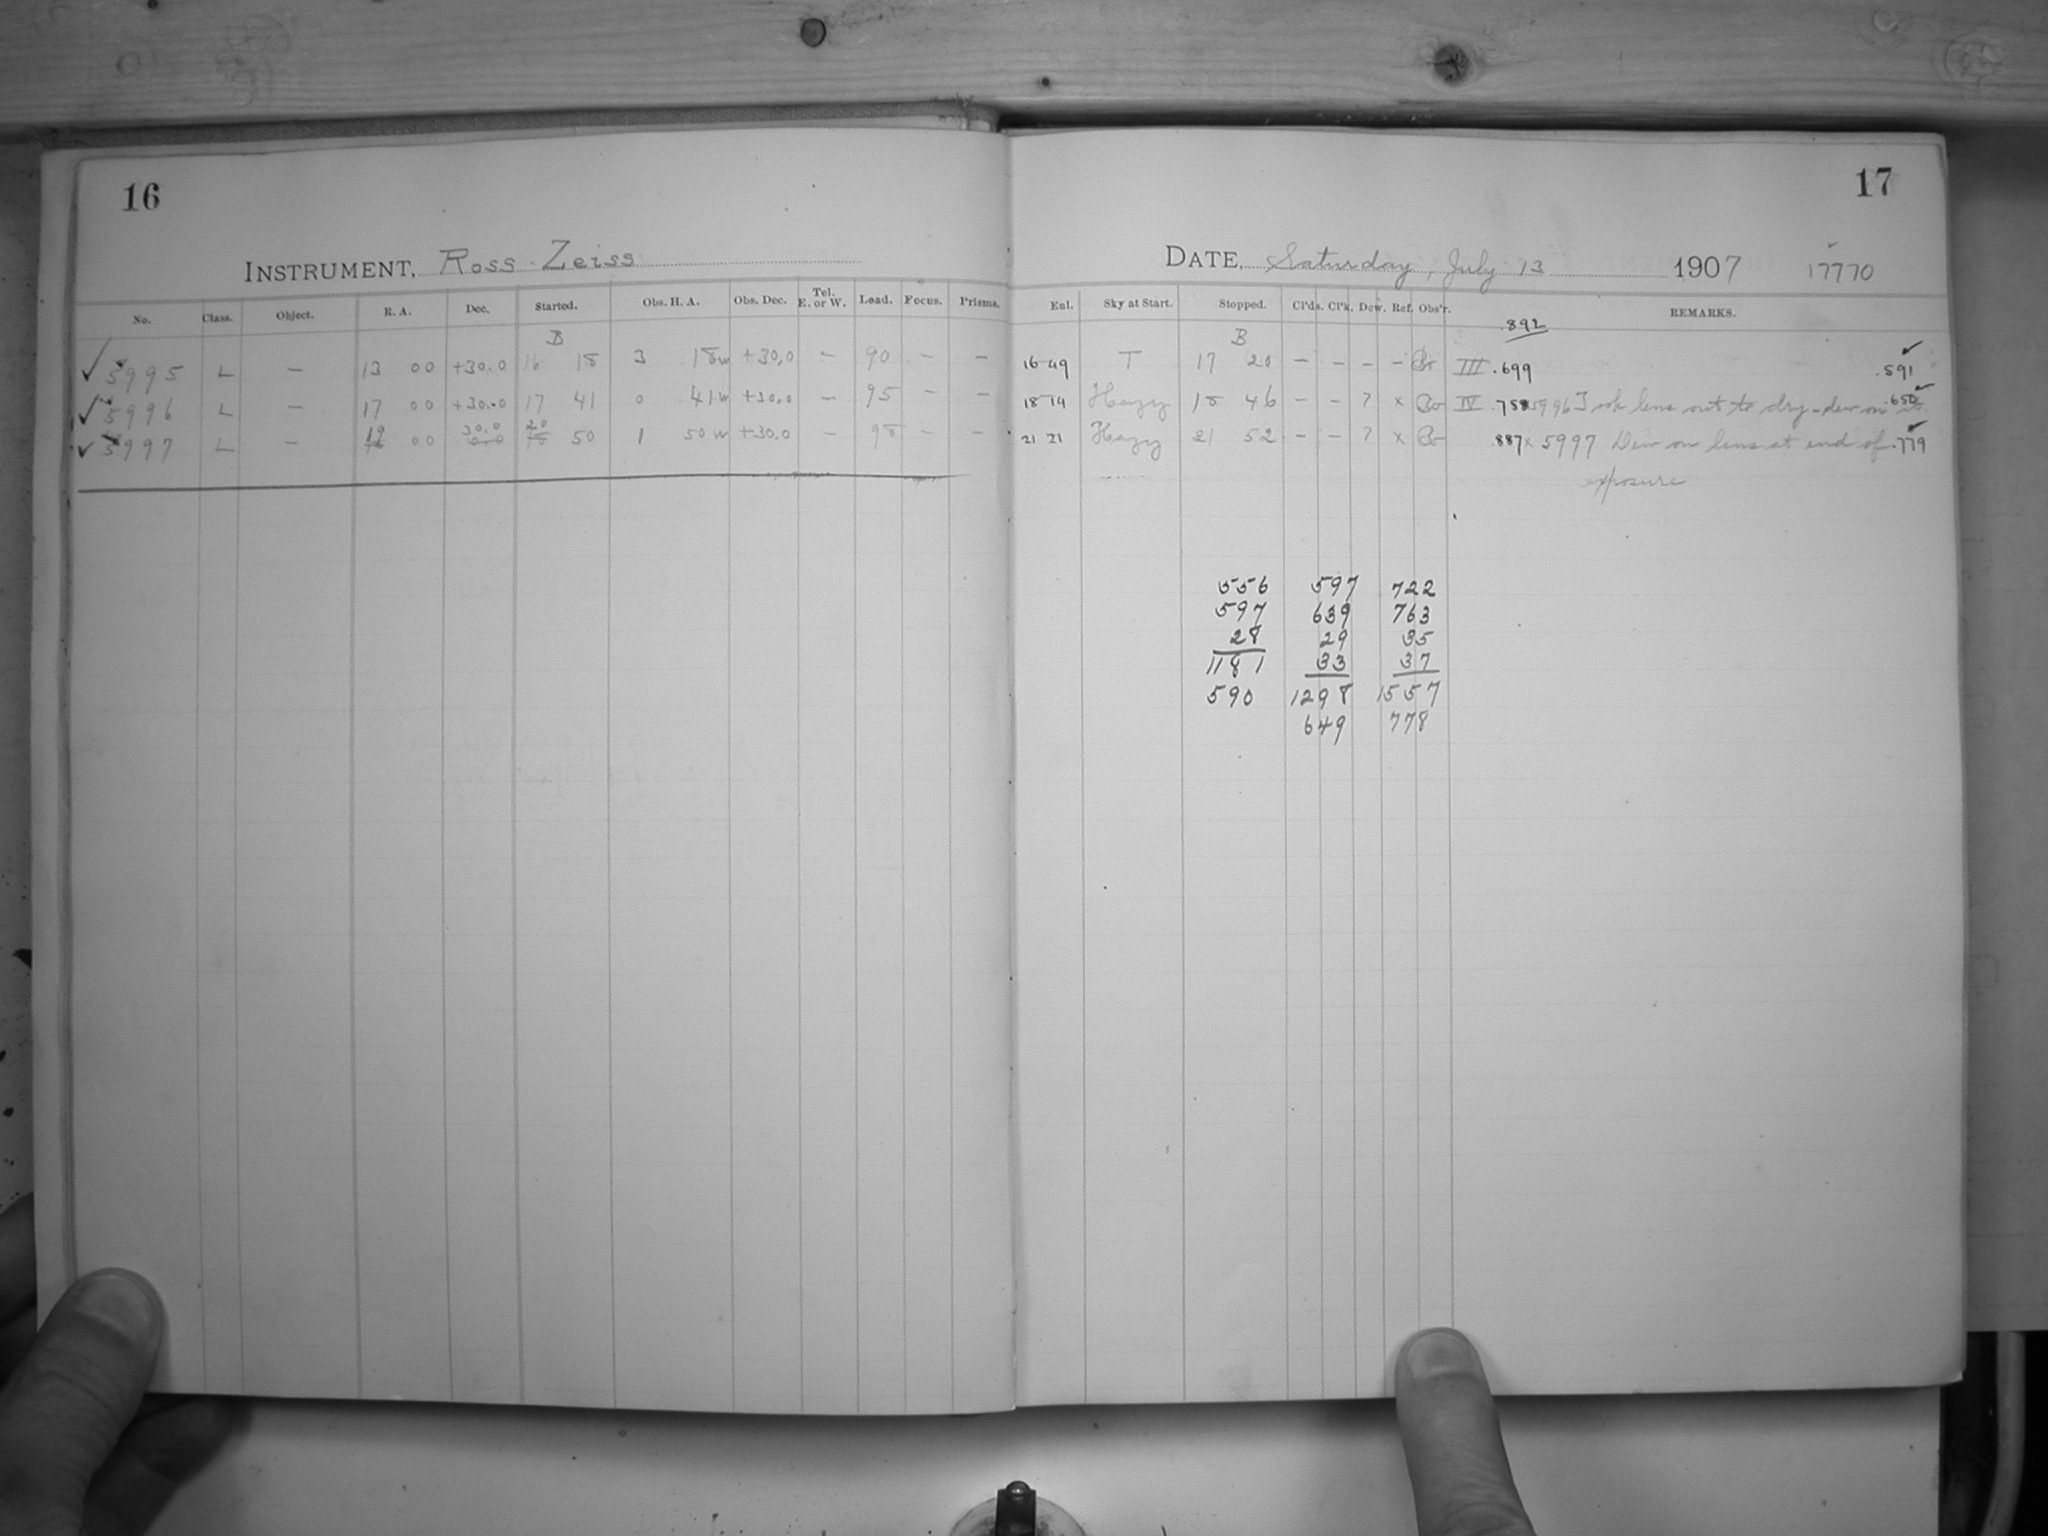 16
INSTRUMENT, Ross-Zeiss
No. Class. Object. R. A. Dec. Started. Obs. H. A. Obs. Dec. Tel. E. or W. Load. Focus. Prisms.
B
✓ 5995 L — 13 00 +30.0 16 18 3 18w +30.0 — 90 — —
✓ 5996 L — 17 00 +30.0 17 41 0 41w +30.0 — 95 — —
19 30.0 20
✓ 5997 L — 00 50 1 50w +30.0 — 98 — —
17
DATE, Saturday, July 13 1907 17770
Enl. Sky at Start. Stopped. Cl'ds. Cl'k. Dew. Ref. Obs'r. REMARKS.
B .892
16 49 T 17 20 — — — — III .699 .591 ✓
18 14 Hazy 18 46 — — ? x IV .758 5996 Took lens out to dry - dew on it .650 ✓
21 21 Hazy 21 52 — — ? x .887 x 5997 Dew on lens at end of .779 ✓
exposure
556 597 722
597 639 763
28 29 35
1181 33 37
590 1298 1557
649 778